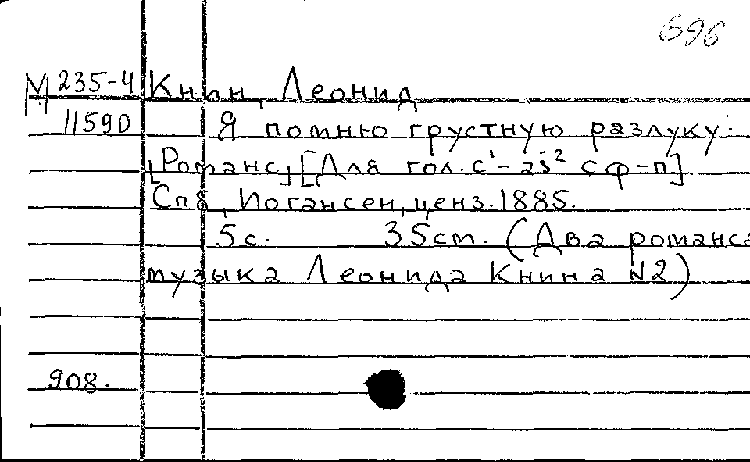 696
М 235-4 Книн, Леонид
11590 Я помню грустную разлуку:
[Романс] [Для гол. c¹-as² с ф-п]
Спб, Иогансен, ценз. 1885.
5с. 35cm. (Два романса
музыка Леонида Книна №2)
908.